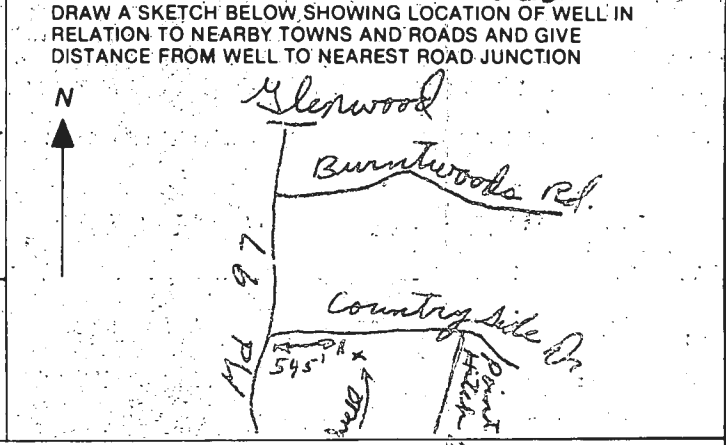 DRAW A SKETCH BELOW SHOWING LOCATION OF WELL IN
RELATION TO NEARBY TOWNS AND ROADS AND GIVE
DISTANCE FROM WELL TO NEAREST ROAD JUNCTION
N
Glenwood
Burntwoods Rd.
Md 97
Country Side Dr.
545'
x
well
Hitch
Point